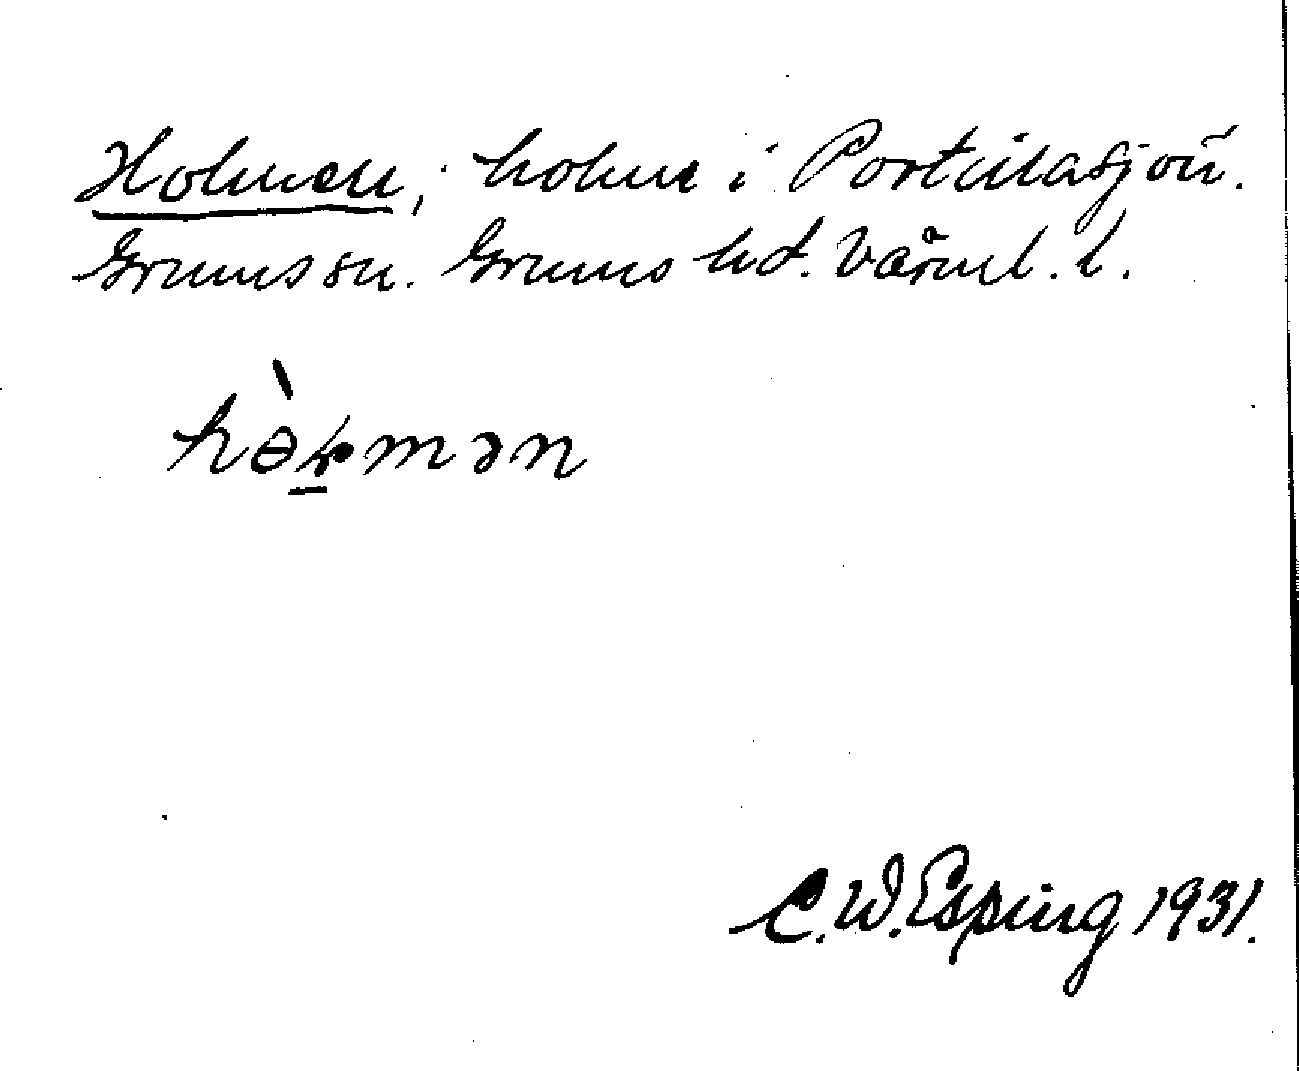 Holmen, holme i Portilasjön.
Grums sn. Grums hd. Värml. l.
hèɽmən
C. W. Esping 1931.